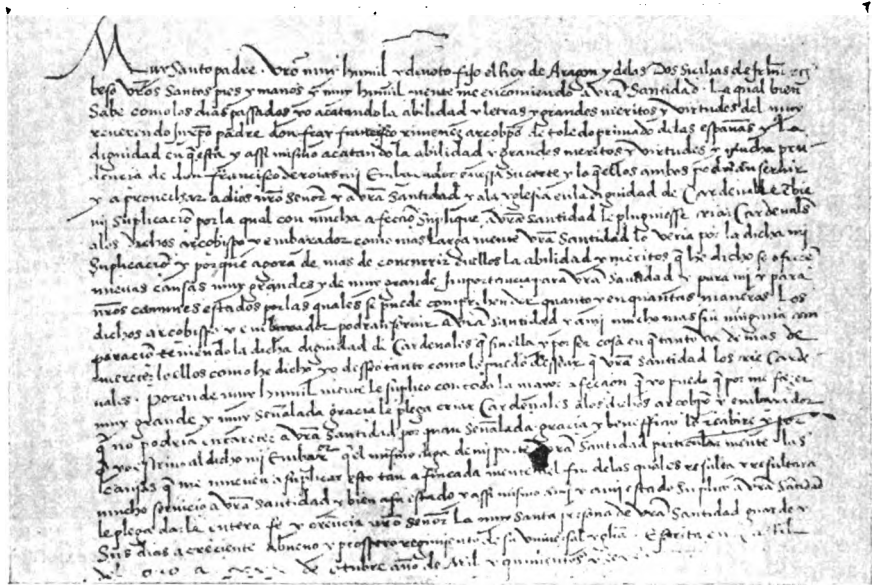 Muy Santo padre. vro muy humil y devoto fijo el Rey de Aragon y delas Dos Sicilias de Jrlm
beso vros Santos pies y manos y muy humil mente me encomiendo a vra Santidad. La qual bien
Sabe como los dias passados yo acatando la abilidad y letras y grandes meritos y virtudes del muy
reverendo in xpo padre don fray francisco ximenez arcobpo de toledo primado de las españas y La
dignidad en q esta y assi mismo acatando la abilidad y grandes meritos y virtudes y mucha pru
dencia de don francisco de rojas mi Embaxador en essa su corte y lo q ellos ambos podrian servir
y aprovechar a dios nro Señor y a vra Santidad y ala yglesia en la dignidad de Cardenal le
mi Suplicacio por la qual con mucha afeccio Suplique a vra Santidad le pluguiesse criar Cardenales
alos dichos arcobispo y embaxador como mas larga mente vra Santidad lo veria por la dicha mi
Suplicacio y porque agora de mas de concurrir en ellos la abilidad y meritos q he dicho se ofrecē
nuevas causas muy grandes y de muy grande Importancia para vra Santidad y para mi y para
nros comunes estados por las quales se puede comprehender quanto y en quantas maneras Los
dichos arcobispo y embaxador podran servir a vra Santidad y a mi mucho mas sin ninguna com
paracio teniendo la dicha dignidad de Cardenales q sin ella y por ser cosa en q tanto va de mas de
merecer lo ellos como he dicho yo desseo tanto como lo puedo dessear q vra Santidad los crie Carde
nales. Porende muy humil mente le suplico con toda la mayor afeccion q yo puedo q por me fazer
muy grande y muy Señalada gracia le plega criar Cardenales alos dichos arcobpo y embaxador
q no podria encarecer a vra Santidad por quan Señalada gracia y beneficio lo recibire y por
q yo escrivo al dicho mi Embaxor q el mismo diga de mi parte vra Santidad particular mente las
causas q me mueven a suplicar esto tan afincada mente el fin delas quales resulta y resultara
mucho servicio a vra Santidad y bien a su estado y assi mismo a mi y a mi estado Suplico a vra Santidad
le plega dar le entera fe y creencia nro Señor La muy Santa persona de vra Santidad guarde y
Sus dias acreciente a bueno y prospero regimiento de su universal yglia. Escrita en
de otubre año de Mil y quinientos y